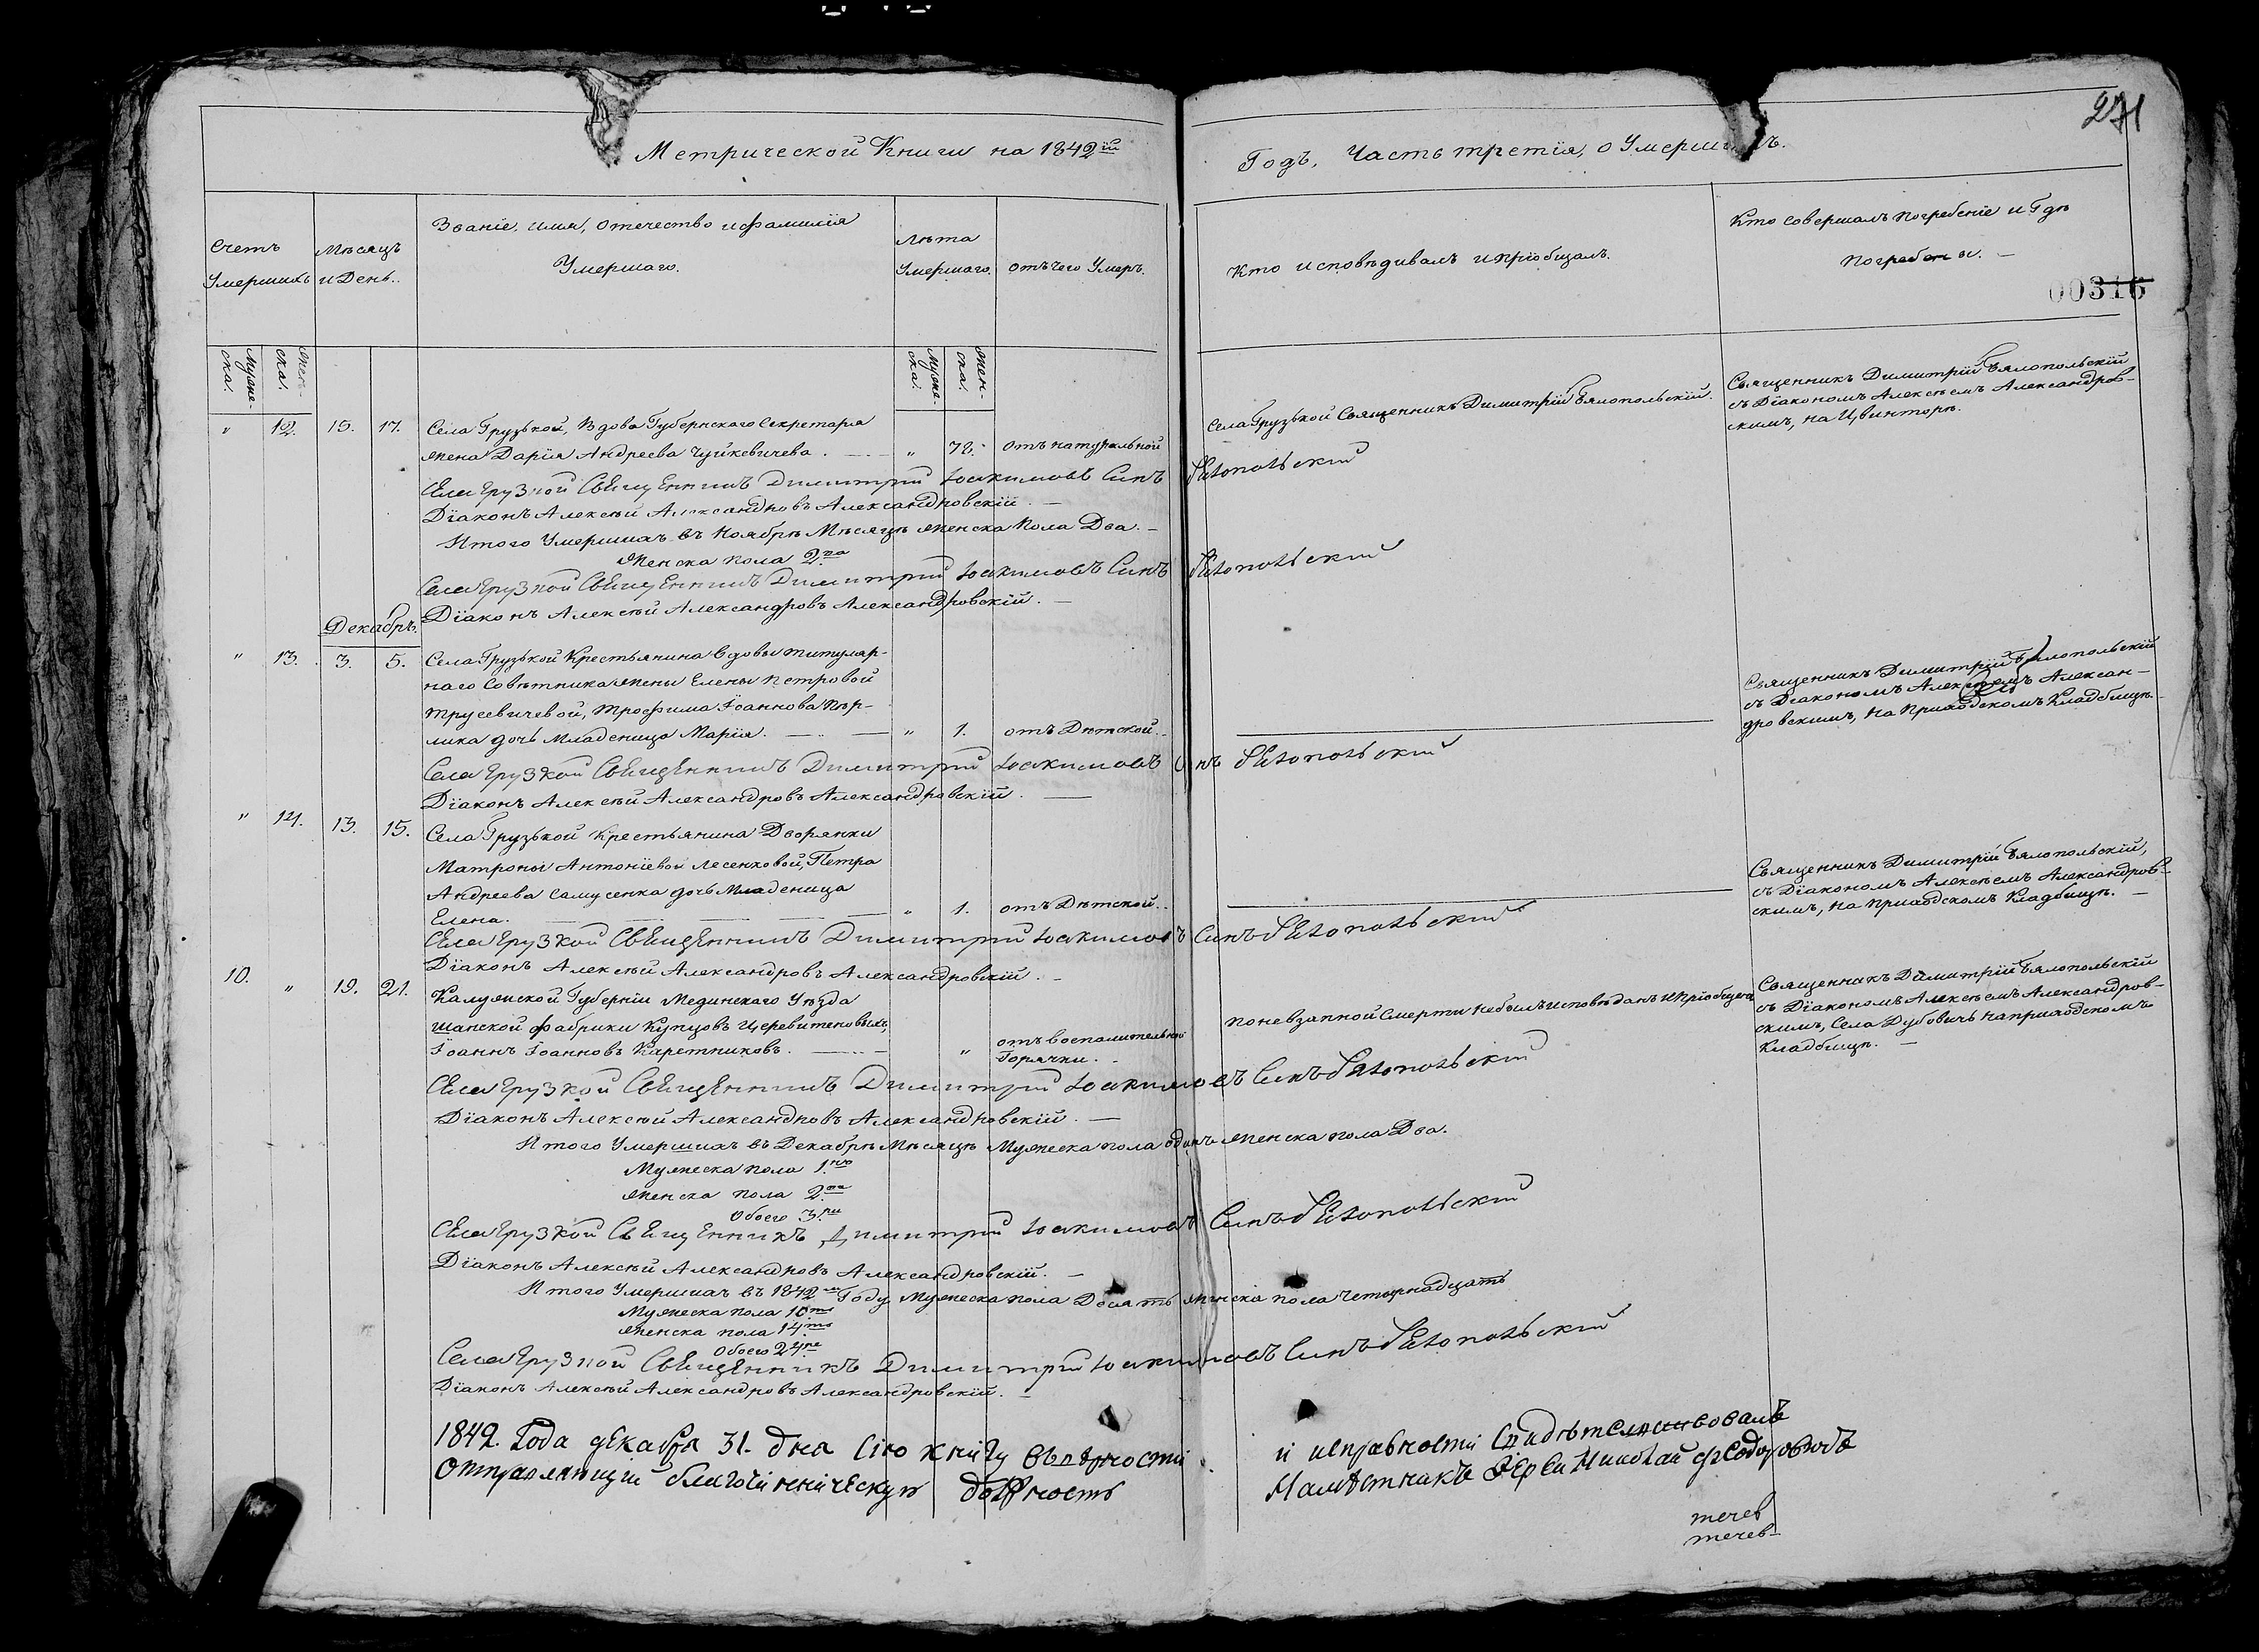 271
Метрической Книги на 1842ій
Годъ, Часть третія, о Умерш ъ.
Счетъ Умершихъ
Мѣсяцъ и День.
Званіе, имя, отечество и фамилія
Умершаго.
Лѣта Умершаго.
отъ чего Умеръ.
Кто исповѣдивалъ и пріобщалъ.
Кто совершалъ погребеніе и Гдѣ
погребены.
00316
Мужеска. Женска.
Мужеска. Женска.
" 12. 15. 17. Села Грузькой, Вдова Губернскаго Секретаря
жена Дарія Андреева Чуйкевичева. " 72. отъ натуральной
Села Грузькой Священникъ Димитрій Бялопольскій.
Священникъ Димитрій Бялопольскій
съ Діакономъ Алексѣемъ Александров-
скимъ, на Цвинторѣ.
Села Грузкой Священникъ Димитрій Іоакимовъ Синъ Бялопольскій
Діаконъ Алексѣй Александровъ Александровскій.
Итого Умершихъ въ Ноябрѣ Мѣсяцѣ женска пола Два.
женска пола 2ва
Села Грузкой Священникъ Димитрій Іоакимовъ Синъ Бялопольскій
Діаконъ Алексѣй Александровъ Александровскій.
Декабрь.
" 13. 3. 5. Села Грузькой Крестьянина вдовы титуляр-
наго Совѣтника жены Елены Петровой
Трусевичевой, Трофима Іоаннова Пир-
лика дочь Младеница Марія. " 1. отъ Дѣтской.
Священникъ Димитрій Бялопольскій
съ Діакономъ Алексѣемъ Алексан-
дровскимъ, на Приходскомъ Кладбищѣ.
Села Грузкой Священникъ Димитрій Іоакимовъ Синъ Бялопольскій
Діаконъ Алексѣй Александровъ Александровскій.
" 14. 13. 15. Села Грузькой Крестьянина Дворянки
Матроны Антоніевой Лесенковой, Петра
Андреева Самусенка дочь Младеница
Елена. " 1. отъ Дѣтской.
Священникъ Димитрій Бялопольскій,
съ Діакономъ Алексѣемъ Александров-
скимъ, на Приходскомъ Кладбищѣ.
Села Грузкой Священникъ Димитрій Іоакимовъ Синъ Бялопольскій
Діаконъ Алексѣй Александровъ Александровскій.
10. " 19. 21. Калужской Губерніи Мединскаго Уѣзда
фабрики Купцовъ
Іоаннъ Іоанновъ Каретниковъ. " отъ воспалительной
Горячки.
по невзапной Смерти небылъ исповѣданъ и пріобщенъ
Священникъ Димитрій Бялопольскій
съ Діакономъ Алексѣемъ Александров-
скимъ, Села Дубовичь на приходскомъ
Кладбищѣ.
Села Грузкой Священникъ Димитрій Іоакимовъ Синъ Бялопольскій
Діаконъ Алексѣй Александровъ Александровскій.
Итого Умершихъ въ Декабрѣ Мѣсяцѣ Мужеска пола одинъ женска пола Два.
Мужеска пола 1нъ
женска пола 2ва
Обоего 3ри
Села Грузкой Священникъ Димитрій Іоакимовъ Синъ Бялопольскій
Діаконъ Алексѣй Александровъ Александровскій.
Итого Умершихъ въ 1842м Году Мужеска пола Десять женска пола четырнадцать
Мужеска пола 10ть
женска пола 14ть
Обоего 24ре
Села Грузкой Священникъ Димитрій Іоакимовъ Синъ Бялопольскій
Діаконъ Алексѣй Александровъ Александровскій.
1842. Года декабря 31. дня Сію книгу въ вѣрности и исправности Свидѣтельствовалъ
Отправляющій благочинническую должность Намѣстникъ Іерей Николай Федоровичь
течев
течев